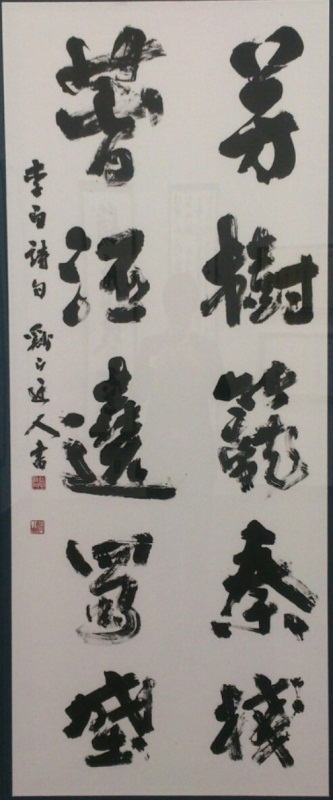 芳樹籠秦棧
春流遶蜀城
李白詩句 人書